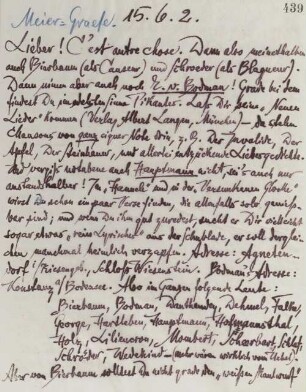 439
Meier-Graefe. 15.6.2.
Lieber! C'est autre chose. Dann also meinethalben
auch Bierbaum (als Causeur) und Schroeder (als Blagueur).
Dann nimm aber auch noch E. v. Bodman! Grade bei dem
findest Du im letzten Pikantes. Laß Dir seine „Neuen
Lieder" kommen (Verlag Albert Langen, München). Da stehen
Chansons von ganz eigner Note drin, z. B. Der Invalide, Der
Apfel, Der Steinhauer, und allerlei entzückende Liebesgedichte.
Und vergiß notabene auch Hauptmann nicht, sei's auch nur
anstandshalber! Im „Hannele" und in der Versunkenen Glocke
wirst Du schon ein paar Verse finden, die allenfalls solo genieß-
bar sind; und wenn Du ihm gut zuredest, sucht er Dir vielleicht
sogar etwas „rein Lyrisches" aus der Schublade, er soll dergle-
chen manchmal heimlich verzapfen. Adresse: Agneten-
dorf i/Riesengeb., Schloß Wiesenstein. Bodmans Adresse:
Konstanz a/Bodensee. Also im Ganzen folgende Leute:
Bierbaum, Bodman, Dauthendey, Dehmel, Falke,
George, Hartleben, Hauptmann, Hofmannsthal,
Holz, Liliencron, Mombert, Scheerbart, Schlaf,
Schröder, Wedekind (mehr wären wirklich vom Übel).
Aber von Bierbaum solltest Du nicht grade den „weißen Maulwurf"